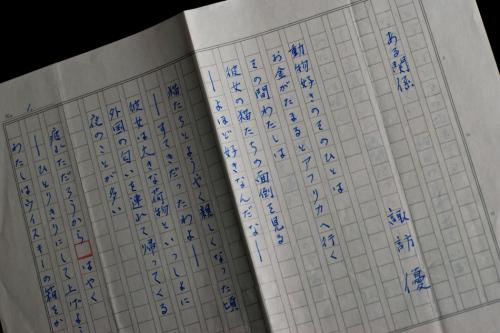 ある関係
諏訪 優
動物好きのそのひとは
お金がたまるとアフリカへ行く
その間わたしは
彼女の猫たちの面倒を見る
―よほど好きなんだな―
猫たちとようやく親しくなった頃
―すてきだったわよ―
彼女は大きな荷物といっしょに
外国の匂いを連れて帰ってくる
夜のことが多い
疲れただろうから はやく
―ひとりきりにして上げよう
わたしはウイスキーの箱をか